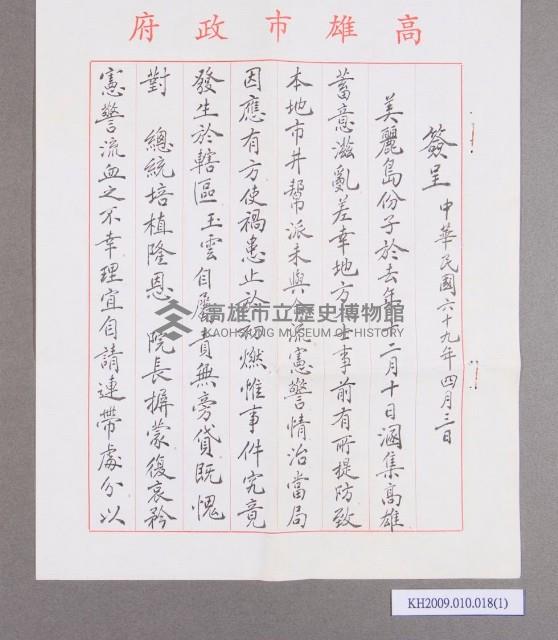 高雄市政府
簽呈 中華民國六十九年四月三日
美麗島份子於去年十二月十日滙集高雄
蓄意滋亂差幸地方人士事前有所提防致
本地市井幫派未與合流憲警情治當局
因應有方使禍患止於初燃惟事件究竟
發生於轄區玉雲自屬責無旁貸既愧
對 總統培植隆恩 院長摒蒙復哀矜
憲警流血之不幸理宜自請連帶處分以
高雄市立歷史博物館
KAOHSIUNG MUSEUM OF HISTORY
KH2009.010.018(1)